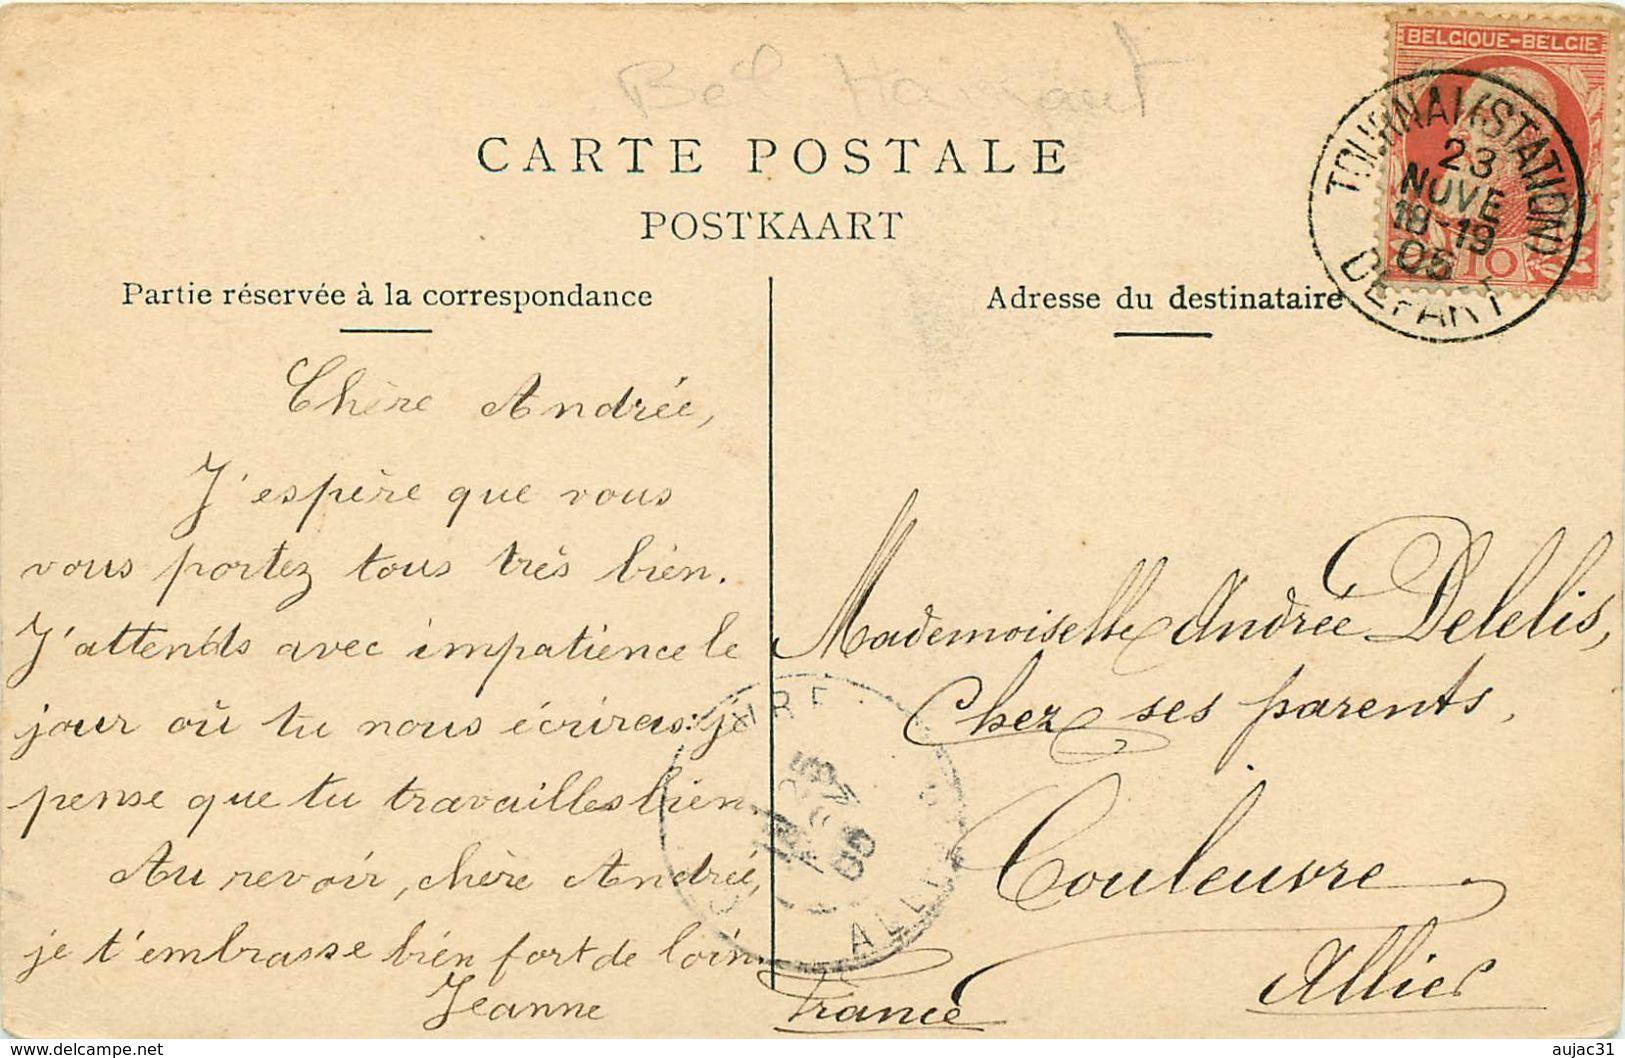 Bel Hainaut
CARTE POSTALE
POSTKAART
BELGIQUE-BELGIE
10
TOURNAI (STATION)
23
NOVE
18-19
05
DEPART
Partie réservée à la correspondance
Chère Andrée,
J'espère que vous
vous portez tous très bien.
J'attends avec impatience le
jour où tu nous écriras: je
pense que tu travailles bien
Au revoir, chère Andrée,
je t'embrasse bien fort de loin.
Jeanne
Adresse du destinataire
Mademoiselle Andrée Delelis,
Chez ses parents,
Couleuvre
Allier
France
ALLIER
delcampe.net
aujac31